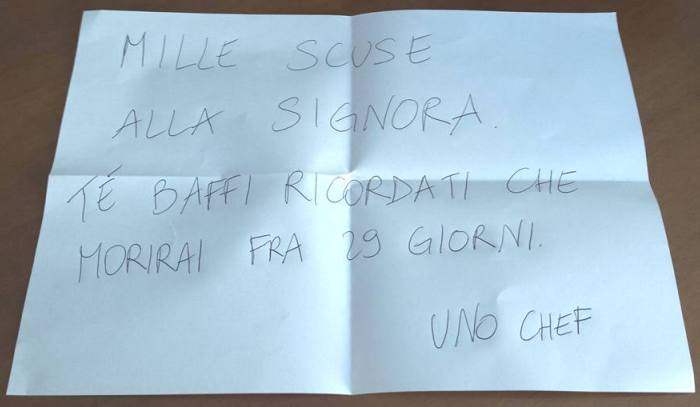 MILLE SCUSE
ALLA SIGNORA.
TÉ BAFFI RICORDATI CHE
MORIRAI FRA 29 GIORNI.
UNO CHEF